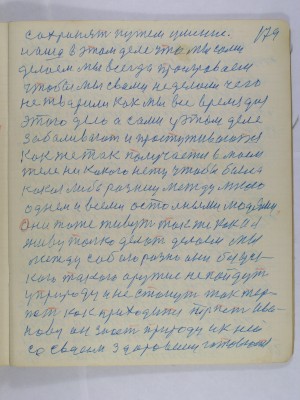 179
сохранят путем умение.
нашед в этом деле что мы сами
делаем мы всегда проигроваем
чтобы мы сваими неделоми чего
не тварили как мы все время для
этого дела а сами у этом деле
забаливают и простуживаются
как же так получаетси в моем
теле ни какого нету чтобы была
какая либо разниц между мною
одним и всеми остольными людьми
они тоже живут так же как и я
живу только делат делаем мы
между собою разно они без вся-
кого такого оружие не пойдут
у природу и не станут так тер-
пет как приходится терпет Ива-
нову он знает природу и к ней
со сваем здоровием готовился